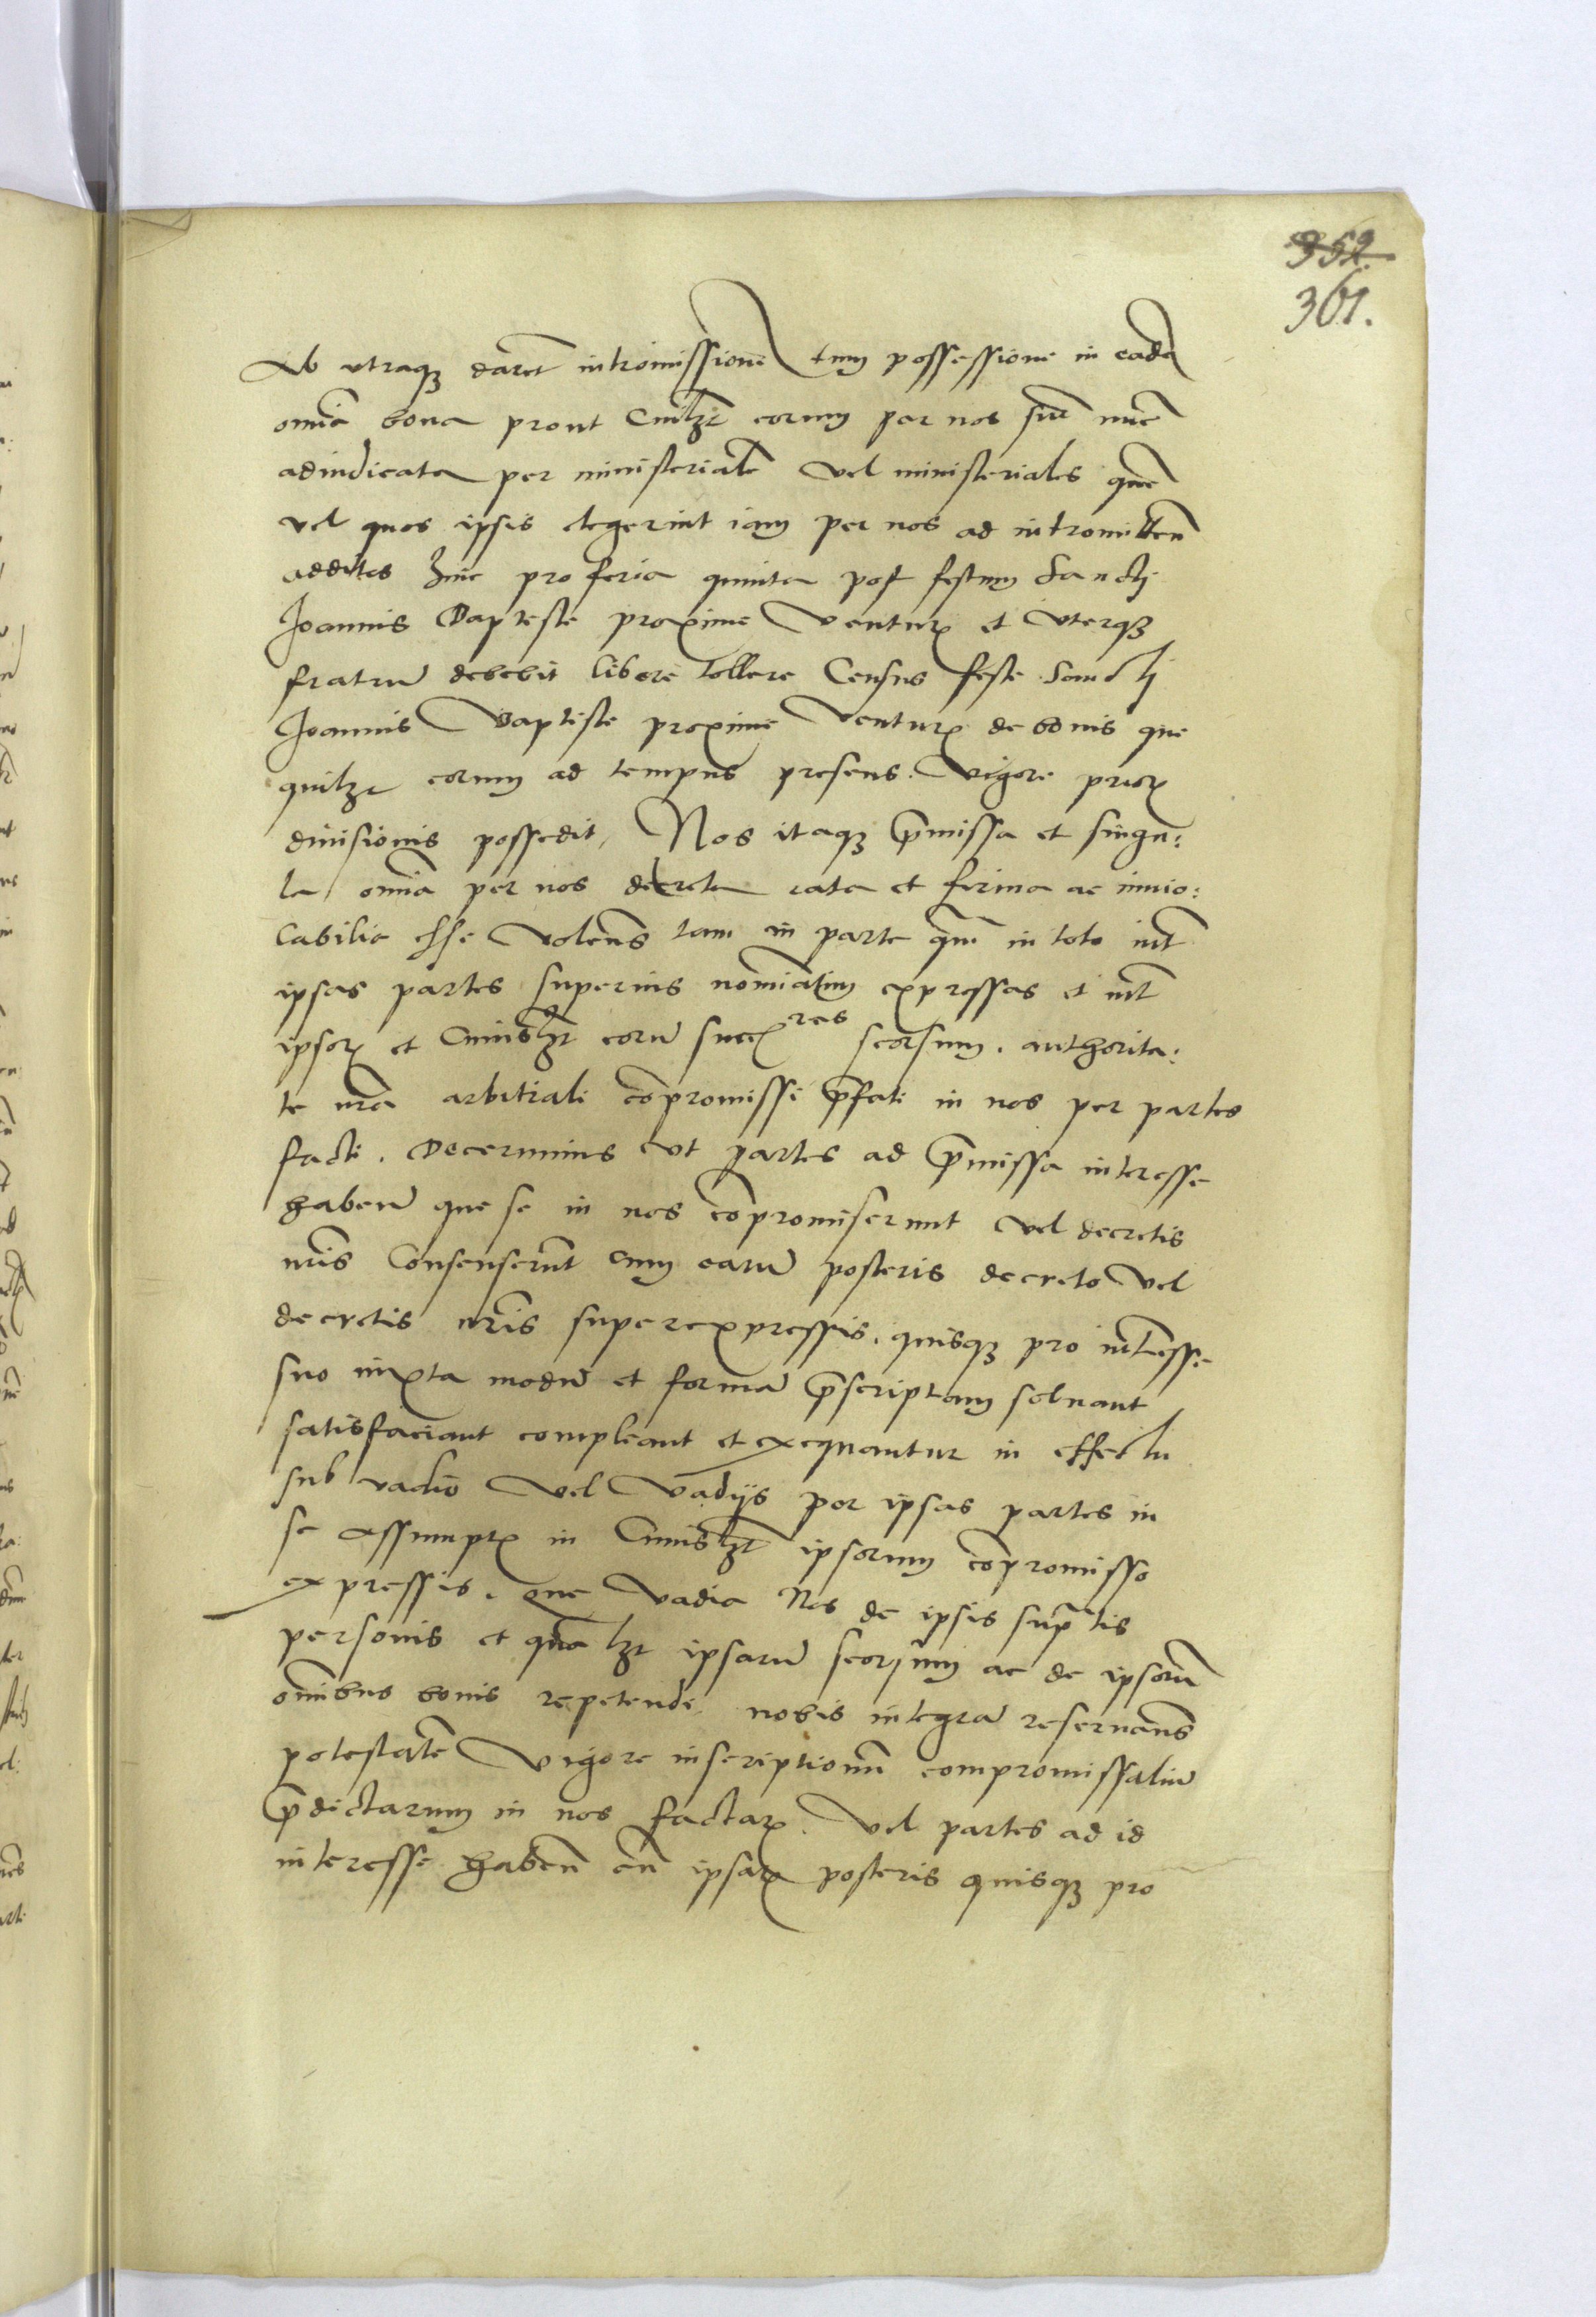 352.
361.
Ab utraqꝫ daret intromissionē cum possessione in eadē
om̄ia bona prout Cuilꝫt eorum per nos sūt nūc
adiudicata per ministerialē vel ministeriales quē
vel quos ipsis elegerint iam per nos ad intromitten̄
additos hinc pro feria quinta post festum Sancti
Joannis Baptiste proxime Ventur̄ et Uterqꝫ
fratrū debebit libere tollere Census festi Sancti
Joannis Baptiste proxime Ventur̄ de bonis que
quilꝫt eorum ad tempus presens. Vigore prior̄
divisionis possedit, Nos itaqꝫ p̄missa et singu:
la om̄ia per nos decreta rata et firma ac invio:
labilia esse Volen̄s tam in parte quā in toto int̄
ipsas partes superius nomiatim expressas et int̄
ipsor̄ et Cuiuslꝫt eorū succ̄res seorsum. authorita:
te nr̄a arbitrali cōpromissi p̄fati in nos per partes
facti. Decernimus ut partes ad p̄missa interesse
haben̄ que se in nos cōpromiserunt vel decretis
nr̄is Consenserūt cum earū posteris decreto vel
decretis nr̄is superexpressis. quisqꝫ pro int̄esse
suo iuxta modū et formā p̄scriptam solvant
satisfaciant compleant et exequantur in effectu
sub vadio vel Vadijs per ipsas partes in
se assumptis in Cuiuslꝫt ipsorum cōpromisso
expressis. que Vadia Nos de ipsis sup̄tis
personis et qualꝫt ipsarū seorsum ac de ipsorū
om̄ibus bonis repetendi nobis integrā reservan̄s
potestatē Vigore inscriptionū compromissaliū
p̄dictarum in nos factar̄. Vel partes ad id
interesse haben̄ cū ipsar̄ posteris quisqꝫ pro